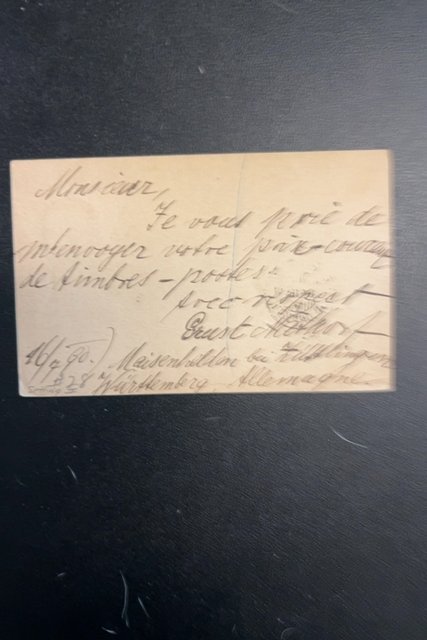 Monsieur,
Je vous prie de
m'envoyer votre prix-courant
de timbres-postes.
Avec respect
Ernst
16/9 90.) Maisenhälden bei
Württemberg. Allemagne